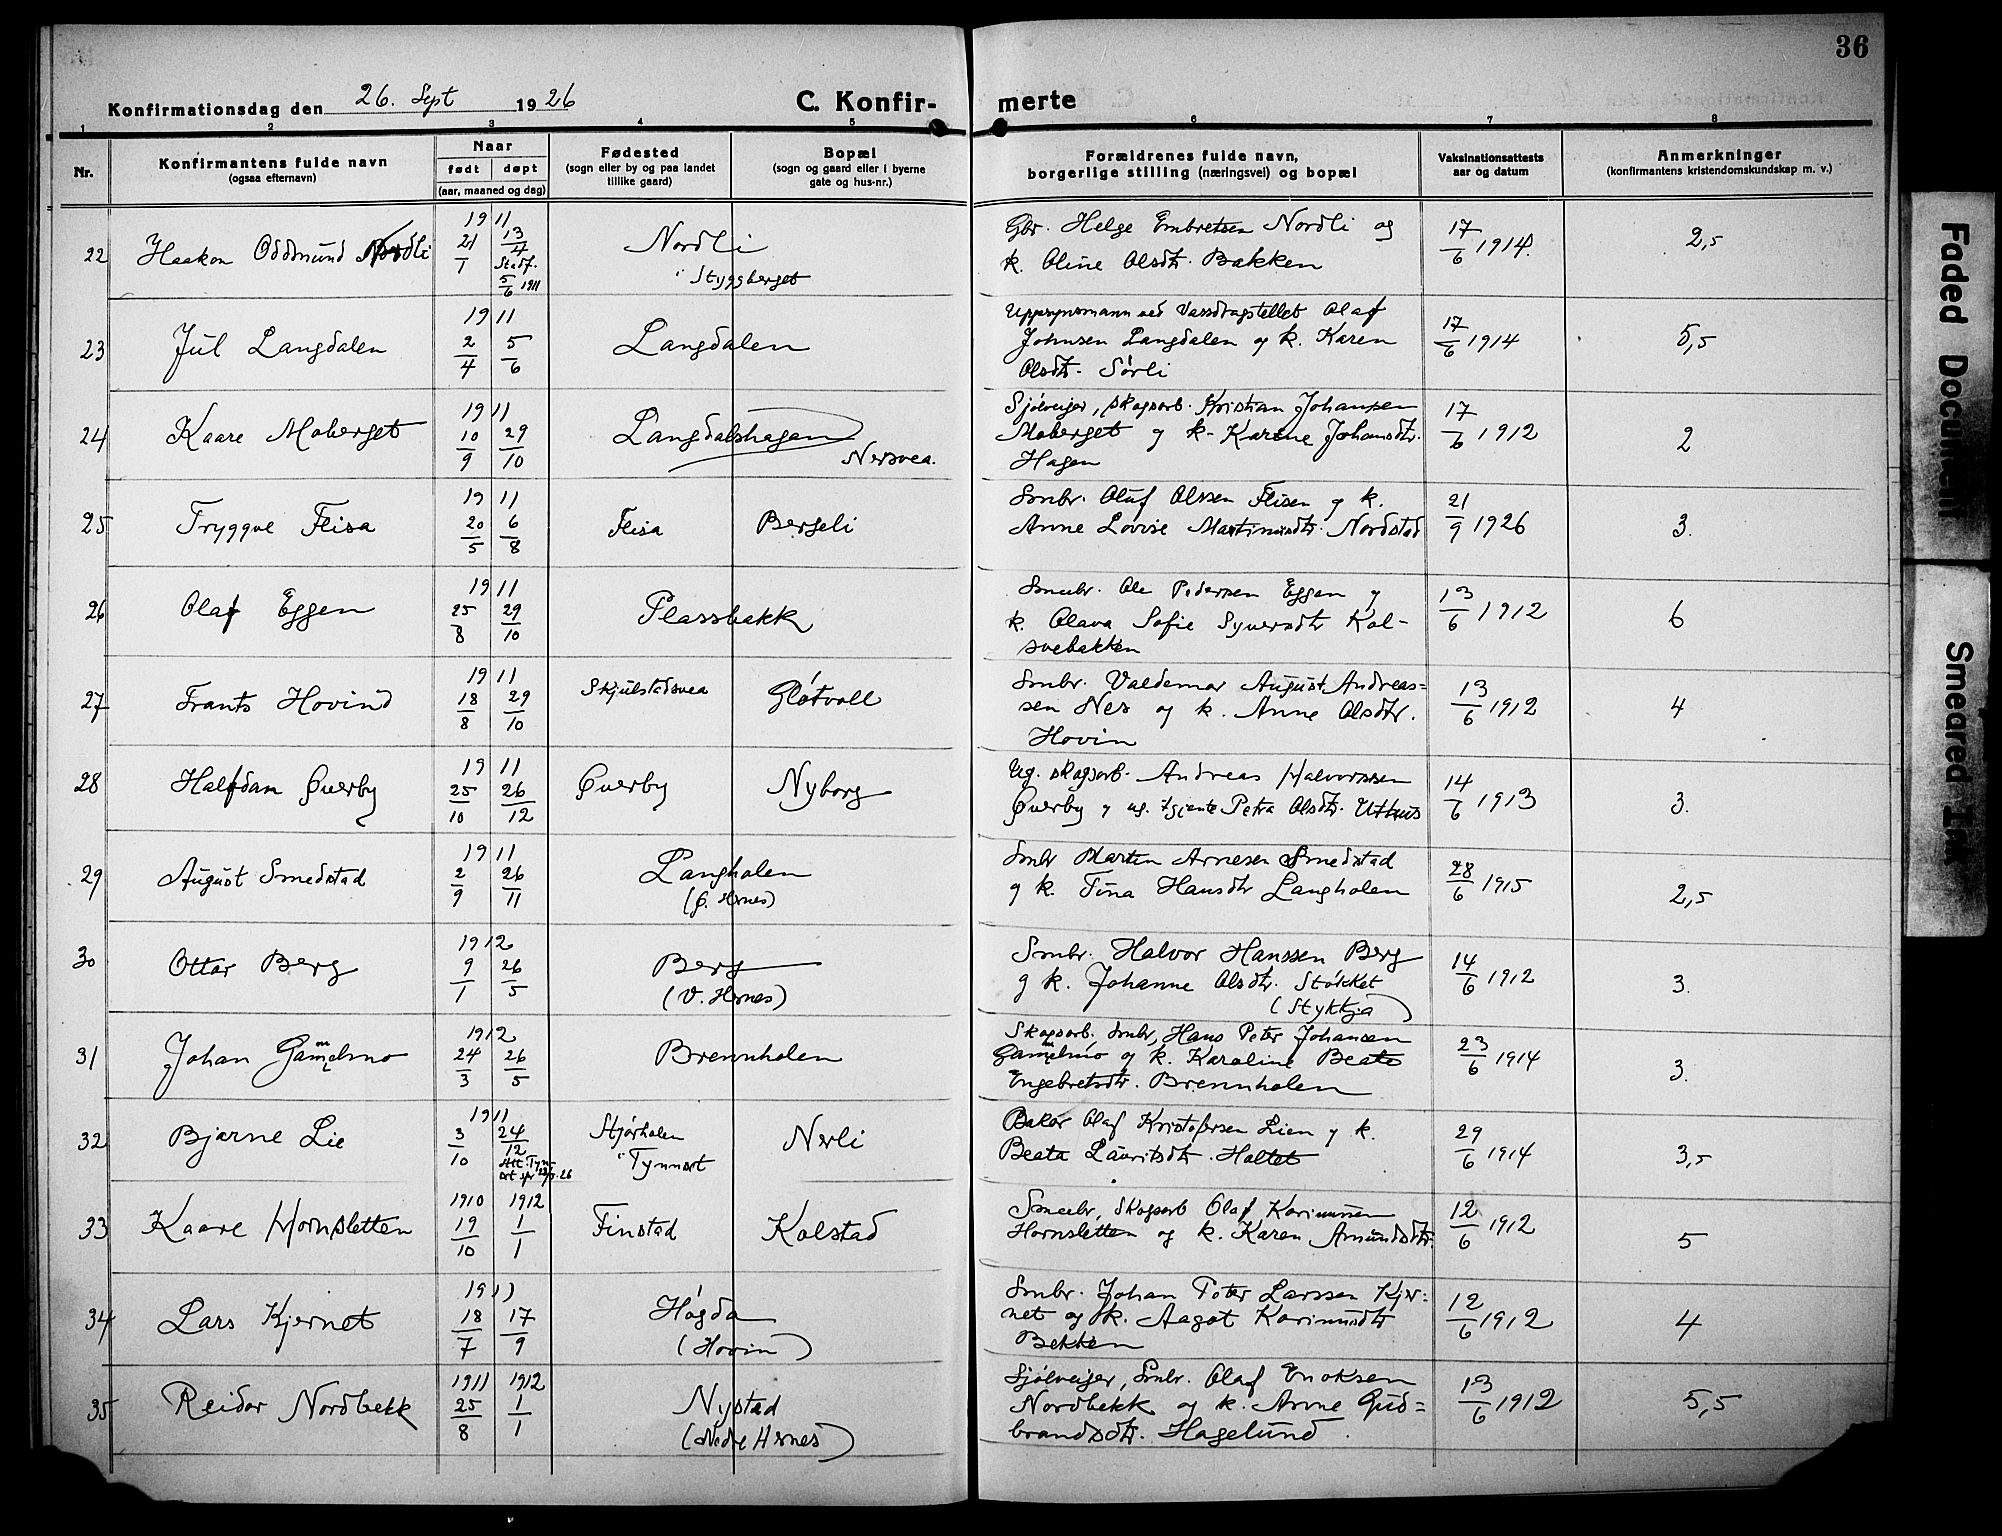 36
Konfirmationsdag den 26. Sept 1926
C. Konfir- merte
1 2 3 4 5 6 7 8
Nr.
Konfirmantens fulde navn
(ogsaa efternavn)
Naar
født døpt
(aar, maaned og dag)
Fødested
(sogn eller by og paa landet
tillike gaard)
Bopæl
(sogn og gaard eller i byerne
gate og hus-nr.)
Forældrenes fulde navn,
borgerlige stilling (næringsvei) og bopæl
Vaksinationsattests
aar og datum
Anmerkninger
(konfirmantens kristendomskundskap m. v.)
22 Haakon Oddmund Nordli
1911
21/1 13/4
Stadf.
5/6 1911
Nordli
" Styggberget
Gbr. Helge Embretsen Nordli og
k. Oline Olsdtr. Bakken
17/6 1914.
2,5
23 Jul Langdalen
1911
2/4 5/6
Langdalen
Uppsynsmann ved Vassdragstellet Olaf
Johnsen Langdalen og k. Karen
Olsdtr. Sørli
17/6 1914
5,5
24 Kaare Moberget
1911
10/9 29/10
Langdalshagen
Nersvea.
Sjølveiger, skogsarb. Kristian Johansen
Moberget og k. Karine Johansdtr.
Hagen
17/6 1912
2
25 Tryggve Fleisa
1911
20/5 6/8
Fleisa
Bergeli
Smbr. Oluf Olssen Fleisen og k.
Anne Lovise Martinusdtr. Nordstad
21/9 1926
3.
26 Olaf Eggen
1911
25/8 29/10
Plassbakk
Smebr. Ole Pedersen Eggen og
k. Olava Sofie Syversdtr Kol-
svebakken
13/6 1912
6
27 Frants Hovind
1911
18/8 29/10
Skjulstadsvea
Gløtvoll
Smbr. Valdemar August Andreas=
sen Nes og k. Anne Olsdtr.
Hovin
13/6 1912
4
28 Halfdan Øverby
1911
25/10 26/12
Øverby
Nyborg
Ug. skogsarb. Andreas Halvorssen
Øverby og ug. tjente Petra Olsdtr. Uthus
14/6 1913
3.
29 August Smedstad
1911
2/9 26/11
Langholen
(Ø. Hernes)
Smbr Martin Arnesen Smedstad
og k. Tina Hansdtr Langholen
28/6 1915
2,5
30 Ottar Berg
1912
9/1 26/5
Berg
(V. Hernes)
Smbr. Halvor Hanssen Berg
og k. Johanne Olsdtr. Støkket
(Stykkja)
14/6 1912
3.
31 Johan Gammelmo
1912
24/3 26/5
Brennholen
Skogsarb. Smbr, Hans Peter Johansen
Gammelmo og k. Karoline Beate
Engebretsdtr. Brennholen
23/6 1914
3.
32 Bjarne Lie
1911
3/10 24/12
Stjørholen
" Tynnset
Nerli
Baker Olaf Kristofersen Lien og k.
Beata Lauritsdtr. Holtet
29/6 1914
3,5
33 Kaare Hornsletten
1910 1912
19/10 1/1
Finstad
Kolstad
Smebr, Skogsarb Olaf Karinussen
Hornsletten og k. Karen Amundsdtr.
12/6 1912
5
34 Lars Kjernet
1911
18/7 17/9
Høgda
(Hovin)
Smbr. Johan Peter Larssen Kjer=
net og k. Aagot Karinusdtr
Bekken
12/6 1912
4
35 Reidar Nordbekk
1911 1912
25/8 1/1
Nystad
(Nedre Hernes)
Sjølveiger, Smbr. Olaf Eriksen
Nordbekk og k. Anne Gud=
brandsdtr. Hagelund.
13/6 1912
5,5
Faded Document
Smeared Ink